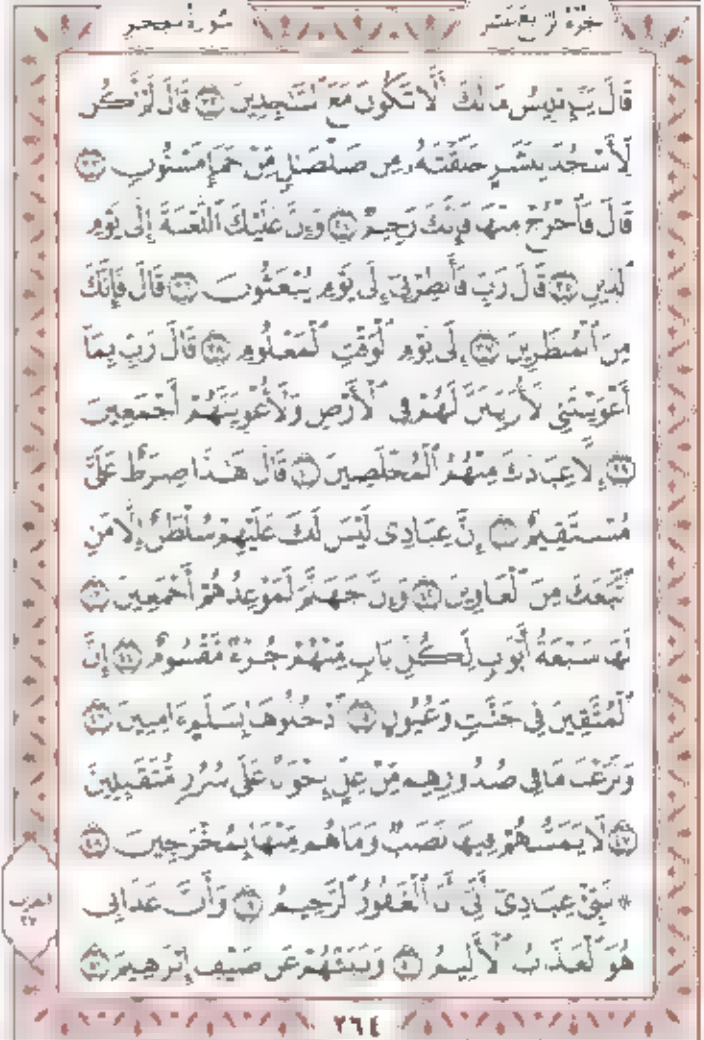 سورة الحجر
الجزء الرابع عشر
قَالَ يَٰٓإِبْلِيسُ مَا لَكَ أَلَّا تَكُونَ مَعَ ٱلسَّٰجِدِينَ ٣٢ قَالَ لَمْ أَكُن
لِّأَسْجُدَ لِبَشَرٍ خَلَقْتَهُۥ مِن صَلْصَٰلٍ مِّنْ حَمَإٍ مَّسْنُونٍ ٣٣
قَالَ فَٱخْرُجْ مِنْهَا فَإِنَّكَ رَجِيمٌ ٣٤ وَإِنَّ عَلَيْكَ ٱللَّعْنَةَ إِلَىٰ يَوْمِ
ٱلدِّينِ ٣٥ قَالَ رَبِّ فَأَنظِرْنِىٓ إِلَىٰ يَوْمِ يُبْعَثُونَ ٣٦ قَالَ فَإِنَّكَ
مِنَ ٱلْمُنظَرِينَ ٣٧ إِلَىٰ يَوْمِ ٱلْوَقْتِ ٱلْمَعْلُومِ ٣٨ قَالَ رَبِّ بِمَآ
أَغْوَيْتَنِى لَأُزَيِّنَنَّ لَهُمْ فِى ٱلْأَرْضِ وَلَأُغْوِيَنَّهُمْ أَجْمَعِينَ
٣٩ إِلَّا عِبَادَكَ مِنْهُمُ ٱلْمُخْلَصِينَ ٤٠ قَالَ هَٰذَا صِرَٰطٌ عَلَىَّ
مُسْتَقِيمٌ ٤١ إِنَّ عِبَادِى لَيْسَ لَكَ عَلَيْهِمْ سُلْطَٰنٌ إِلَّا مَنِ
ٱتَّبَعَكَ مِنَ ٱلْغَاوِينَ ٤٢ وَإِنَّ جَهَنَّمَ لَمَوْعِدُهُمْ أَجْمَعِينَ ٤٣
لَهَا سَبْعَةُ أَبْوَٰبٍ لِّكُلِّ بَابٍ مِّنْهُمْ جُزْءٌ مَّقْسُومٌ ٤٤ إِنَّ
ٱلْمُتَّقِينَ فِى جَنَّٰتٍ وَعُيُونٍ ٤٥ ٱدْخُلُوهَا بِسَلَٰمٍ ءَامِنِينَ ٤٦
وَنَزَعْنَا مَا فِى صُدُورِهِم مِّنْ غِلٍّ إِخْوَٰنًا عَلَىٰ سُرُرٍ مُّتَقَٰبِلِينَ
٤٧ لَا يَمَسُّهُمْ فِيهَا نَصَبٌ وَمَا هُم مِّنْهَا بِمُخْرَجِينَ ٤٨
۞ نَبِّئْ عِبَادِىٓ أَنِّىٓ أَنَا ٱلْغَفُورُ ٱلرَّحِيمُ ٤٩ وَأَنَّ عَذَابِى
هُوَ ٱلْعَذَابُ ٱلْأَلِيمُ ٥٠ وَنَبِّئْهُمْ عَن ضَيْفِ إِبْرَٰهِيمَ ٥١
الحزب
٢٧
٢٦٤